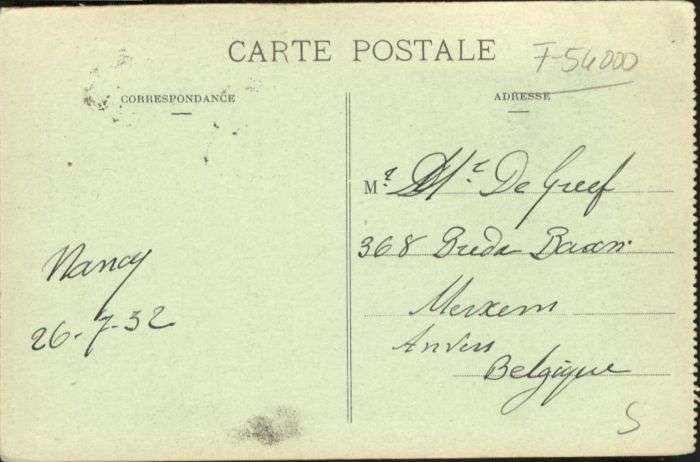 CARTE POSTALE
F-54000
CORRESPONDANCE
ADRESSE
Mr. Mr De Greef
368 Breda Baan
Merxem
Anvers
Belgique
Nancy
26-7-32
S